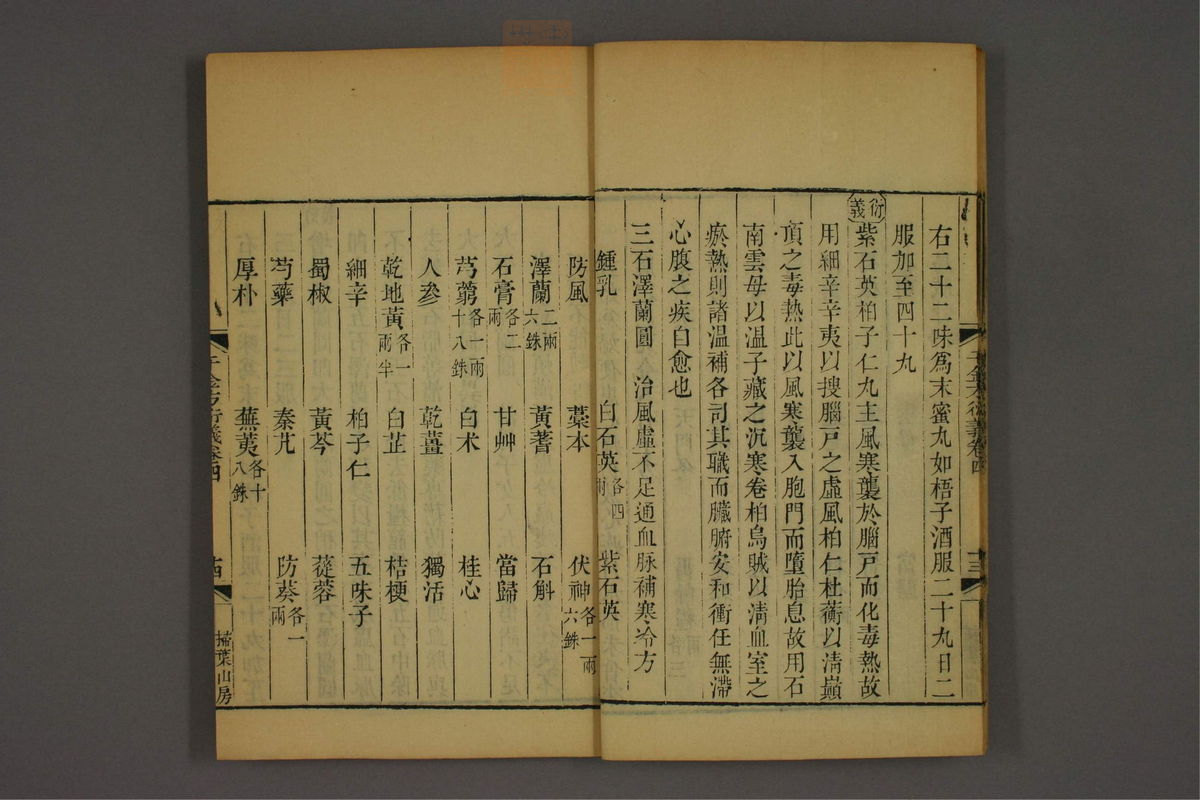 右二十二味爲末蜜丸如梧子酒服二十九日二
服加至四十丸
衍義
紫石英柏子仁丸主風寒襲於腦戸而化毒熱故
用細辛辛夷以搜腦戸之虛風柏仁杜蘅以淸巔
頂之毒熱此以風寒襲入胞門而墮胎息故用石
南雲母以温子藏之沉寒卷柏烏賊以淸血室之
瘀熱則諸温補各司其職而臟腑安和衝任無滯
心腹之疾自愈也
三石澤蘭圓 治風虛不足通血脉補寒冷方
鍾乳 白石英各四兩 紫石英
防風 藁本 伏神各一兩六銖
澤蘭二兩六銖 黃蓍 石斛
石膏各二兩 甘艸 當歸
芎藭各一兩十八銖 白术 桂心
人參 乾薑 獨活
乾地黃各一兩半 白芷 桔梗
細辛 柏子仁 五味子
蜀椒 黃芩 蓯蓉
芍藥 秦艽 防葵各一兩
厚朴 蕪荑各十八銖
千金方衍義卷四
掃葉山房